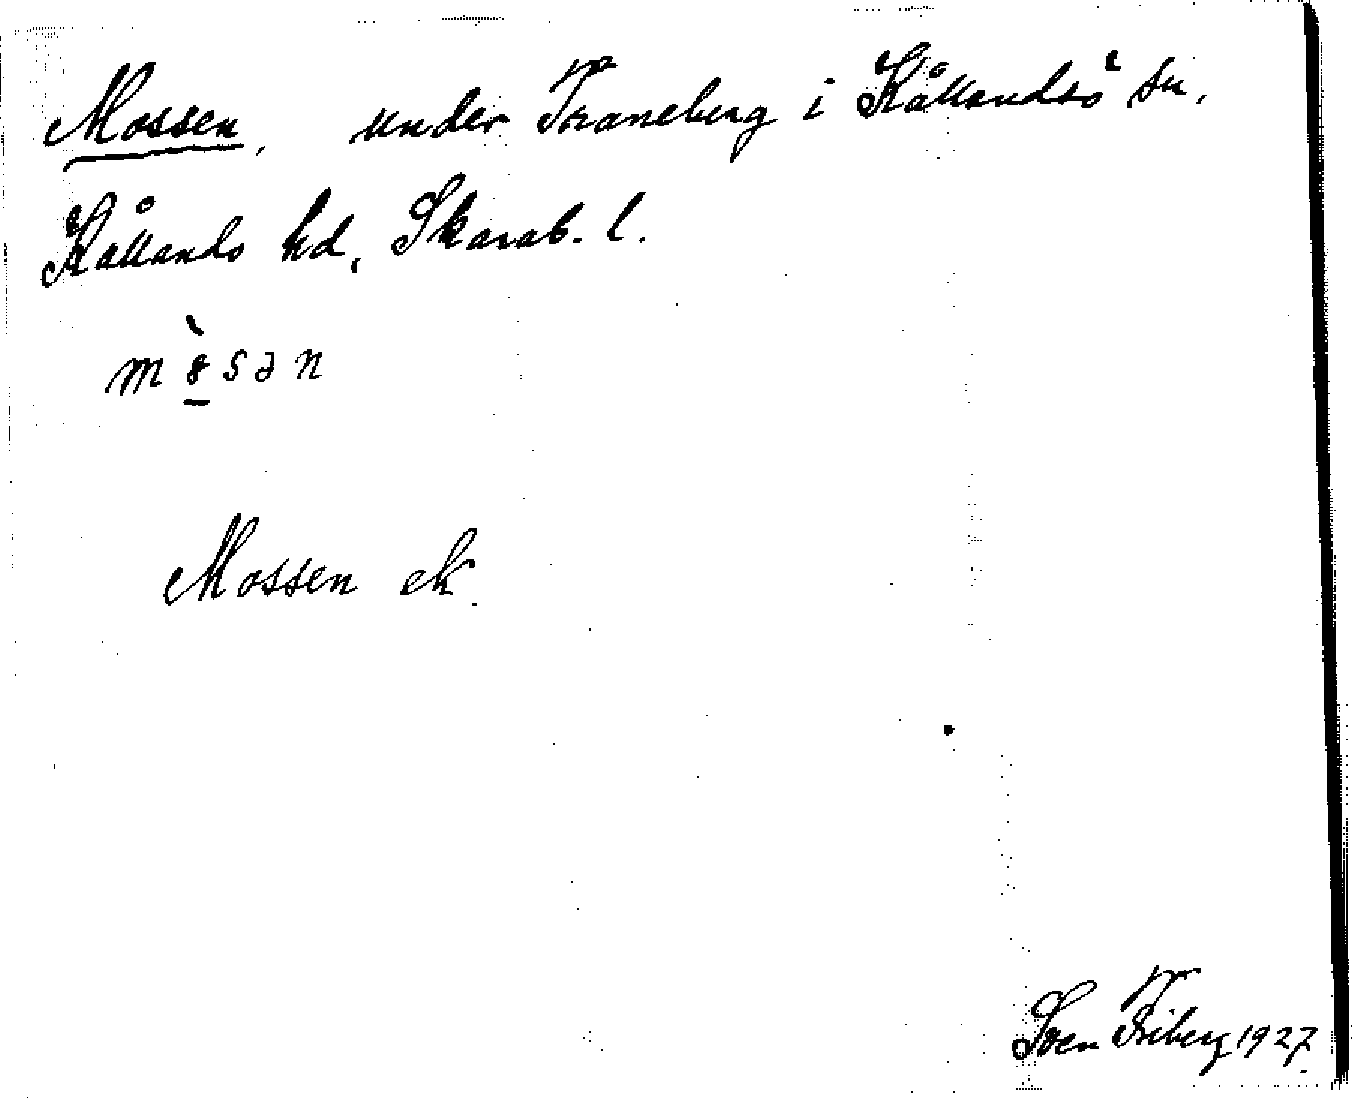 Mossen, under Traneberg i Kållandsö sn,
Kållands hd, Skarab. l.
Mossen ek.
Sven Friberg 1927.